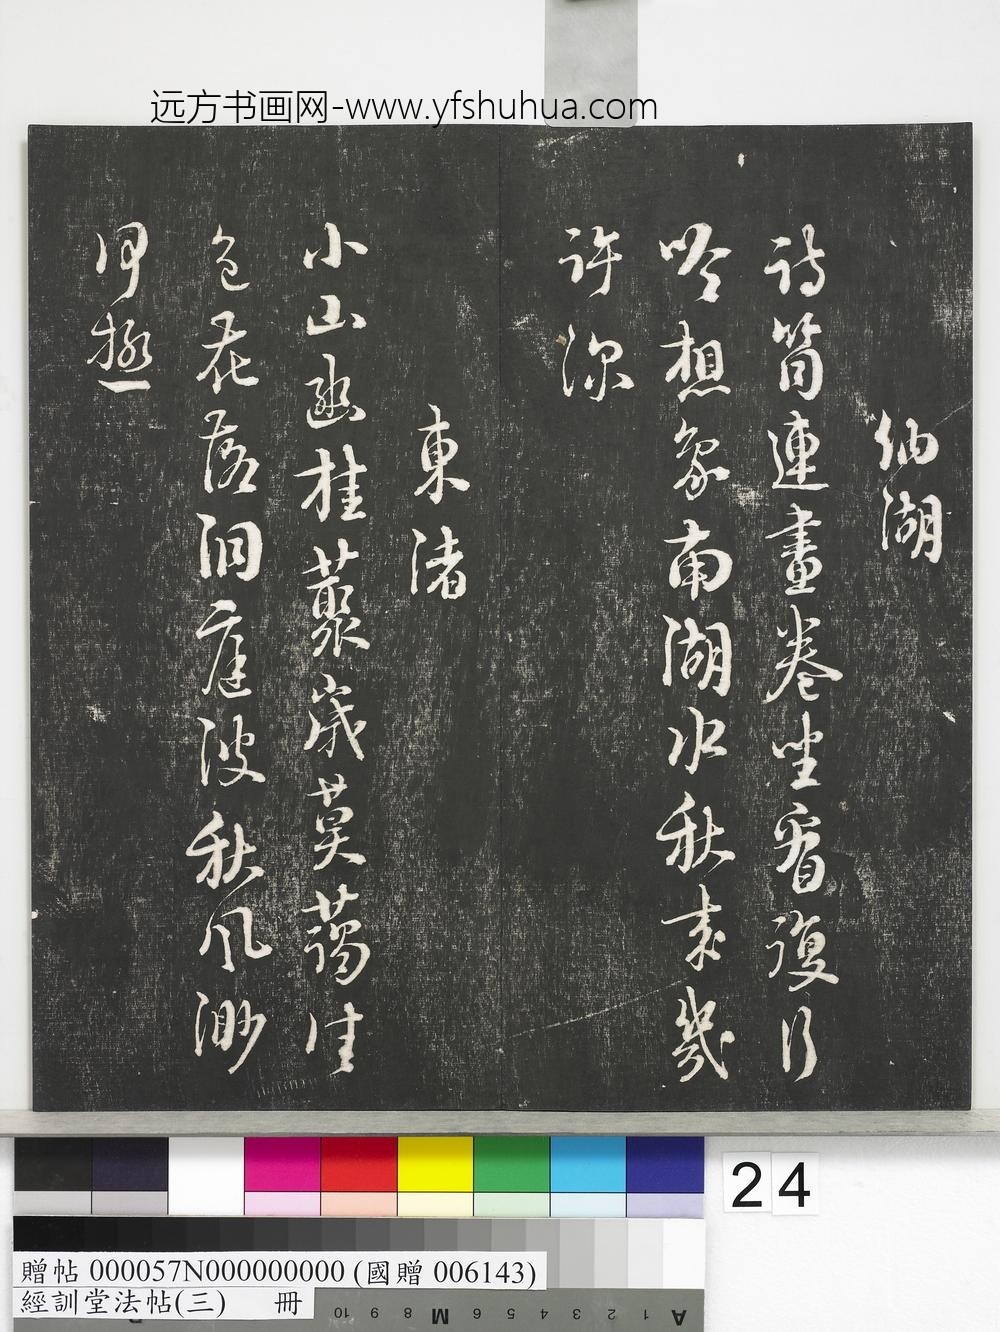 远方书画网-www.yfshuhua.com
納湖
詩筒連畫卷坐看復行
吟想象南湖水秋來幾
許深
東渚
小山幽桂藂歲莫藹佳
色花落洞庭波秋風渺
何極
24
贈帖 000057N000000000 (國贈 006143)
經訓堂法帖(三) 冊
A 1 2 3 4 5 6 M 8 9 10